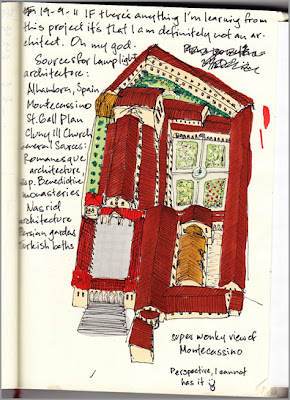 19-9-11 If there's anything I'm learning from
this project it's that I am definitely not an ar-
chitect. Oh my god.
Sources for lamplight
architecture:
Alhambra, Spain
Montecassino
St. Gall Plan
Cluny III Church
General Sources:
Romanesque
architecture,
esp. Benedictine
monasteries
Nasrid
architecture
Persian gardens
Turkish baths
super wonky view of
Montecassino
Perspective, I cannot
has it